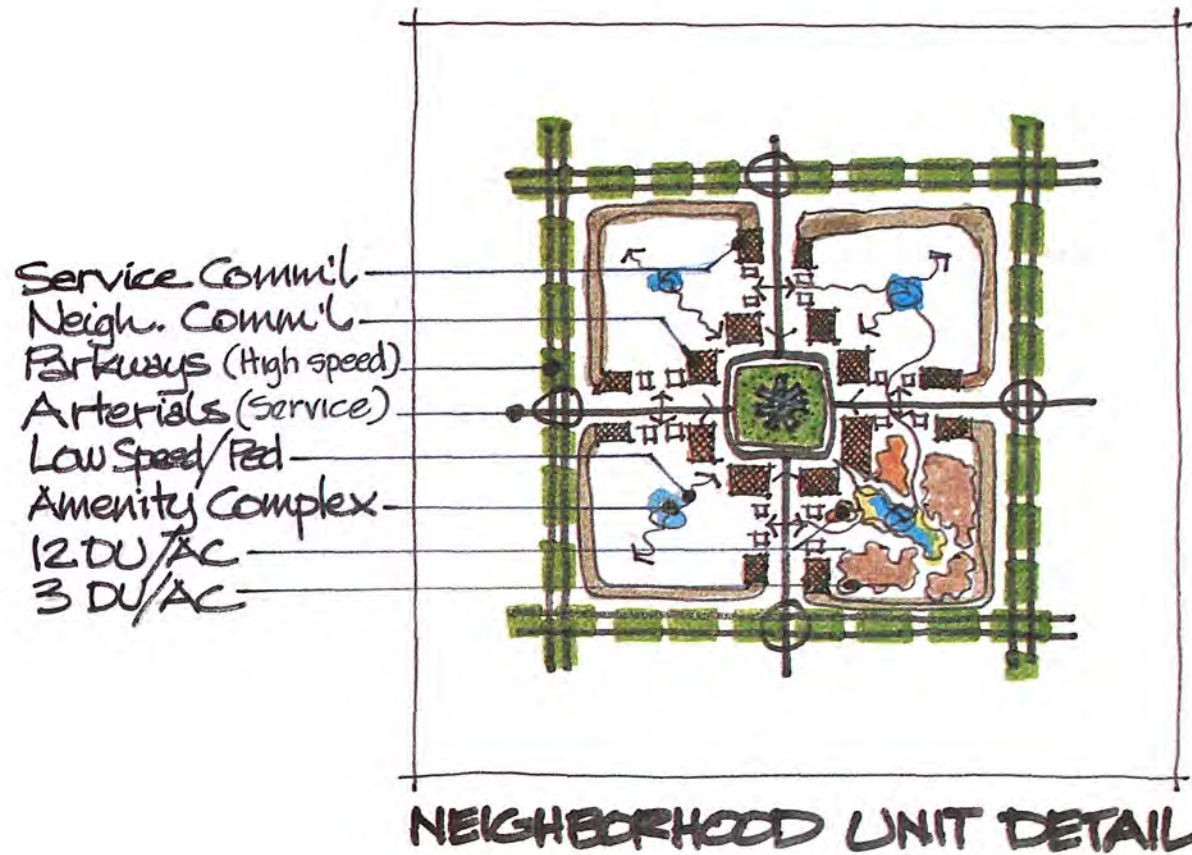 Service Comm'l
Neigh. Comm'l
Parkways (High speed)
Arterials (Service)
Low Speed/Ped
Amenity Complex
12 DU/AC
3 DU/AC
NEIGHBORHOOD UNIT DETAIL